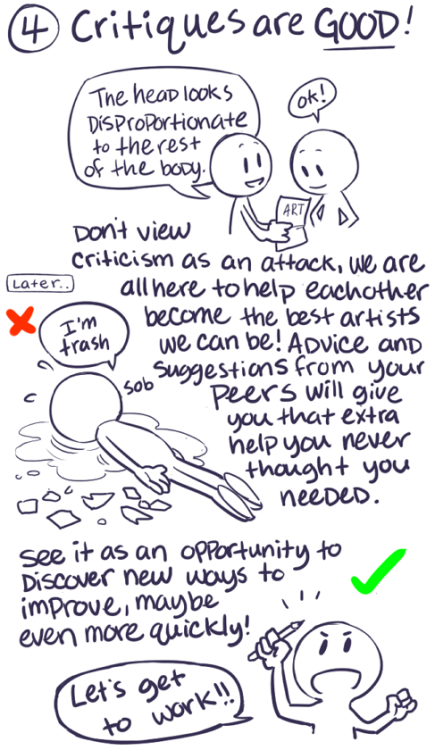 4 Critiques are GOOD!
The head looks
Disproportionate
to the rest
of the body.
ok!
ART
Don't view
criticism as an attack, we are
all here to help eachother
become the best artists
we can be! Advice and
suggestions from your
peers will give
you that extra
help you never
thought you
needed.
Later..
I'm
trash
sob
see it as an opportunity to
Discover new ways to
improve, maybe
even more quickly!
Let's get
to work!!